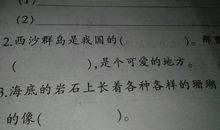 (1)
(2)
2.西沙群岛是我国的( )。那里
( ),是个可爱的地方。
3.海底的岩石上长着各种各样的珊瑚
的像( )。